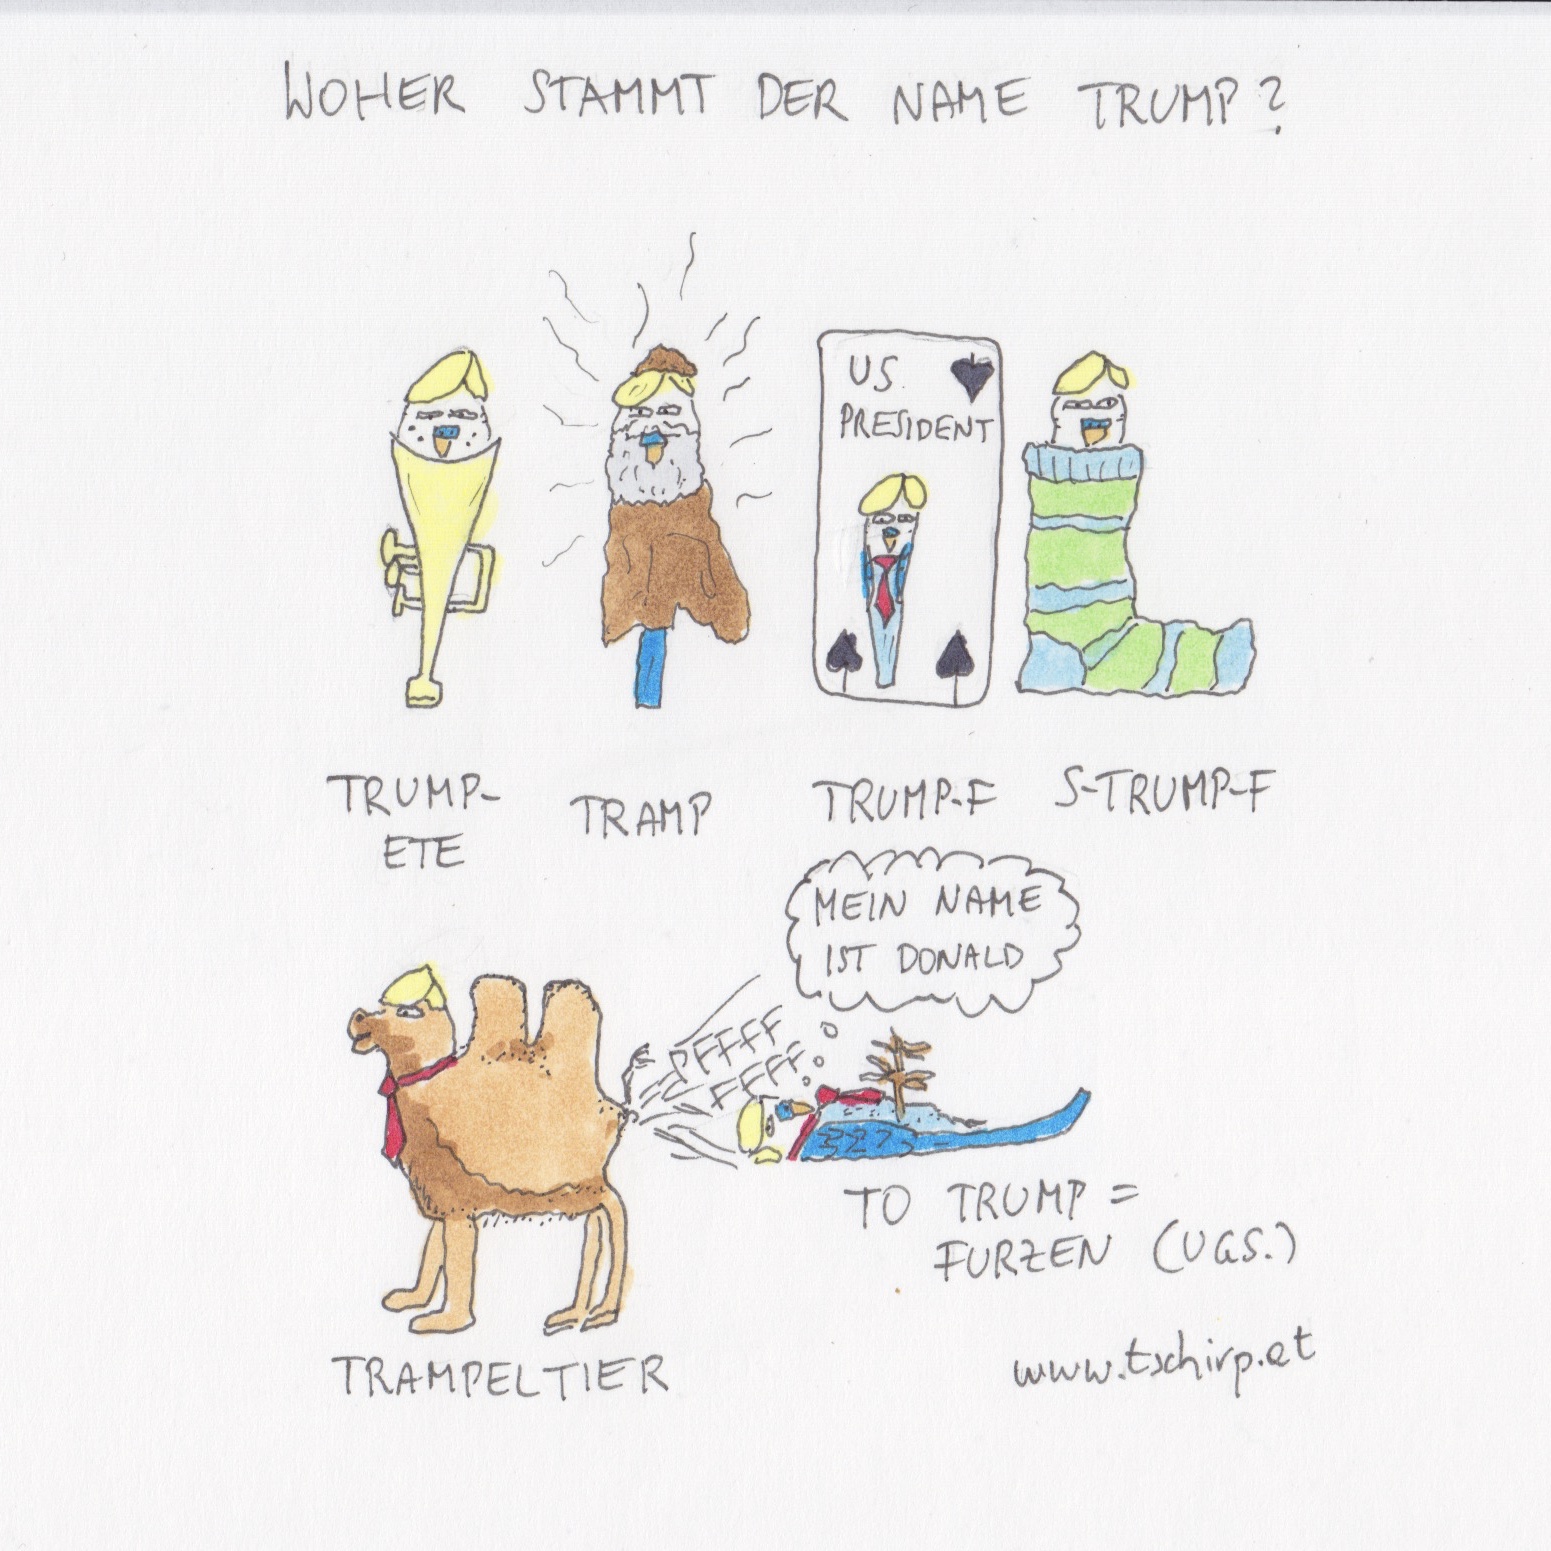 WOHER STAMMT DER NAME TRUMP?
US.
PRESIDENT
TRUMP-
ETE
TRAMP
TRUMP-F
S-TRUMP-F
MEIN NAME
IST DONALD
PFFFF
FFFF
TO TRUMP =
FURZEN (UGS.)
TRAMPELTIER
www.tschirp.at